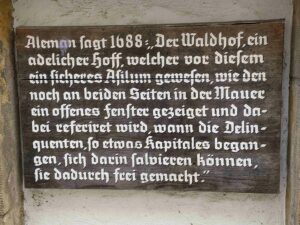 Aleman sagt 1688: „Der Waldhof, ein
adelicher Hoff, welcher vor diesem
ein sicheres Asilum gewesen, wie den
noch an beiden Seiten in der Mauer
ein offenes Fenster gezeiget und da-
bei referiret wird, wann die Delin-
quenten, so etwas Kapitales began-
gen, sich darin salvieren können,
sie dadurch frei gemacht.“